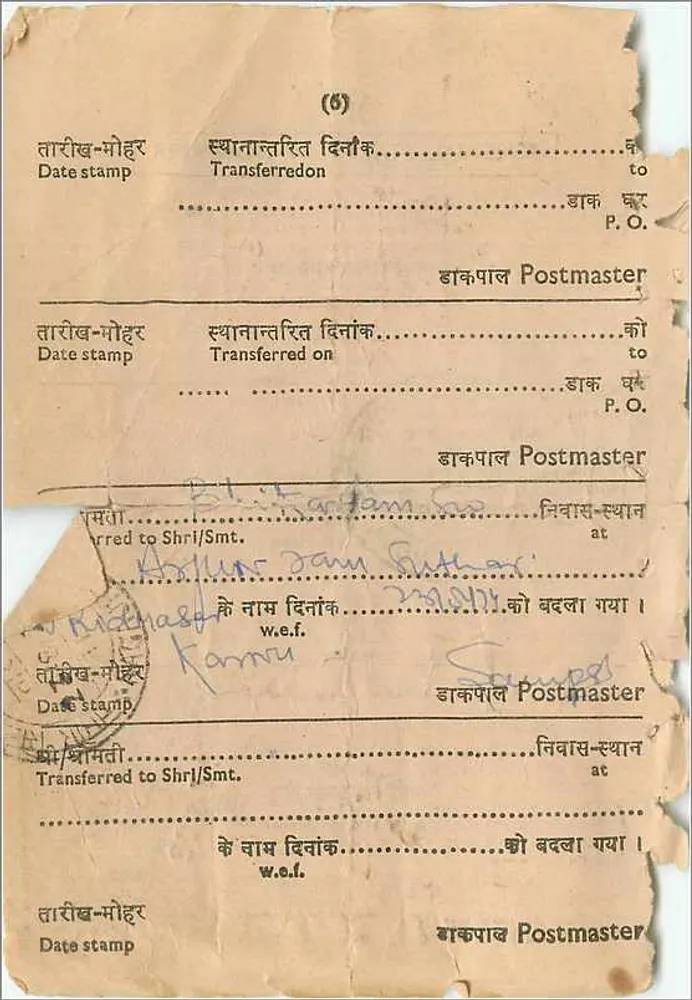 (6)
तारीख-मोहर स्थानान्तरित दिनाँक.......................................को
Date stamp Transferredon to
..............................................................डाक घर
P. O.
डाकपाल Postmaster
तारीख-मोहर स्थानान्तरित दिनांक.......................................को
Date stamp Transferred on to
...... ..................................................डाक घर
P. O.
डाकपाल Postmaster
मती.......................................निवास-स्थान
rred to Shri/Smt. at
Suthar
के नाम दिनांक.........................को बदला गया ।
w.e.f.
तारीख-मोहर
डाकपाल Postmaster
Date stamp
श्री/श्रीमती.......................................निवास-स्थान
Transferred to Shri/Smt. at
के नाम दिनांक.........................को बदला गया ।
w.e.f.
तारीख-मोहर
डाकपाल Postmaster
Date stamp